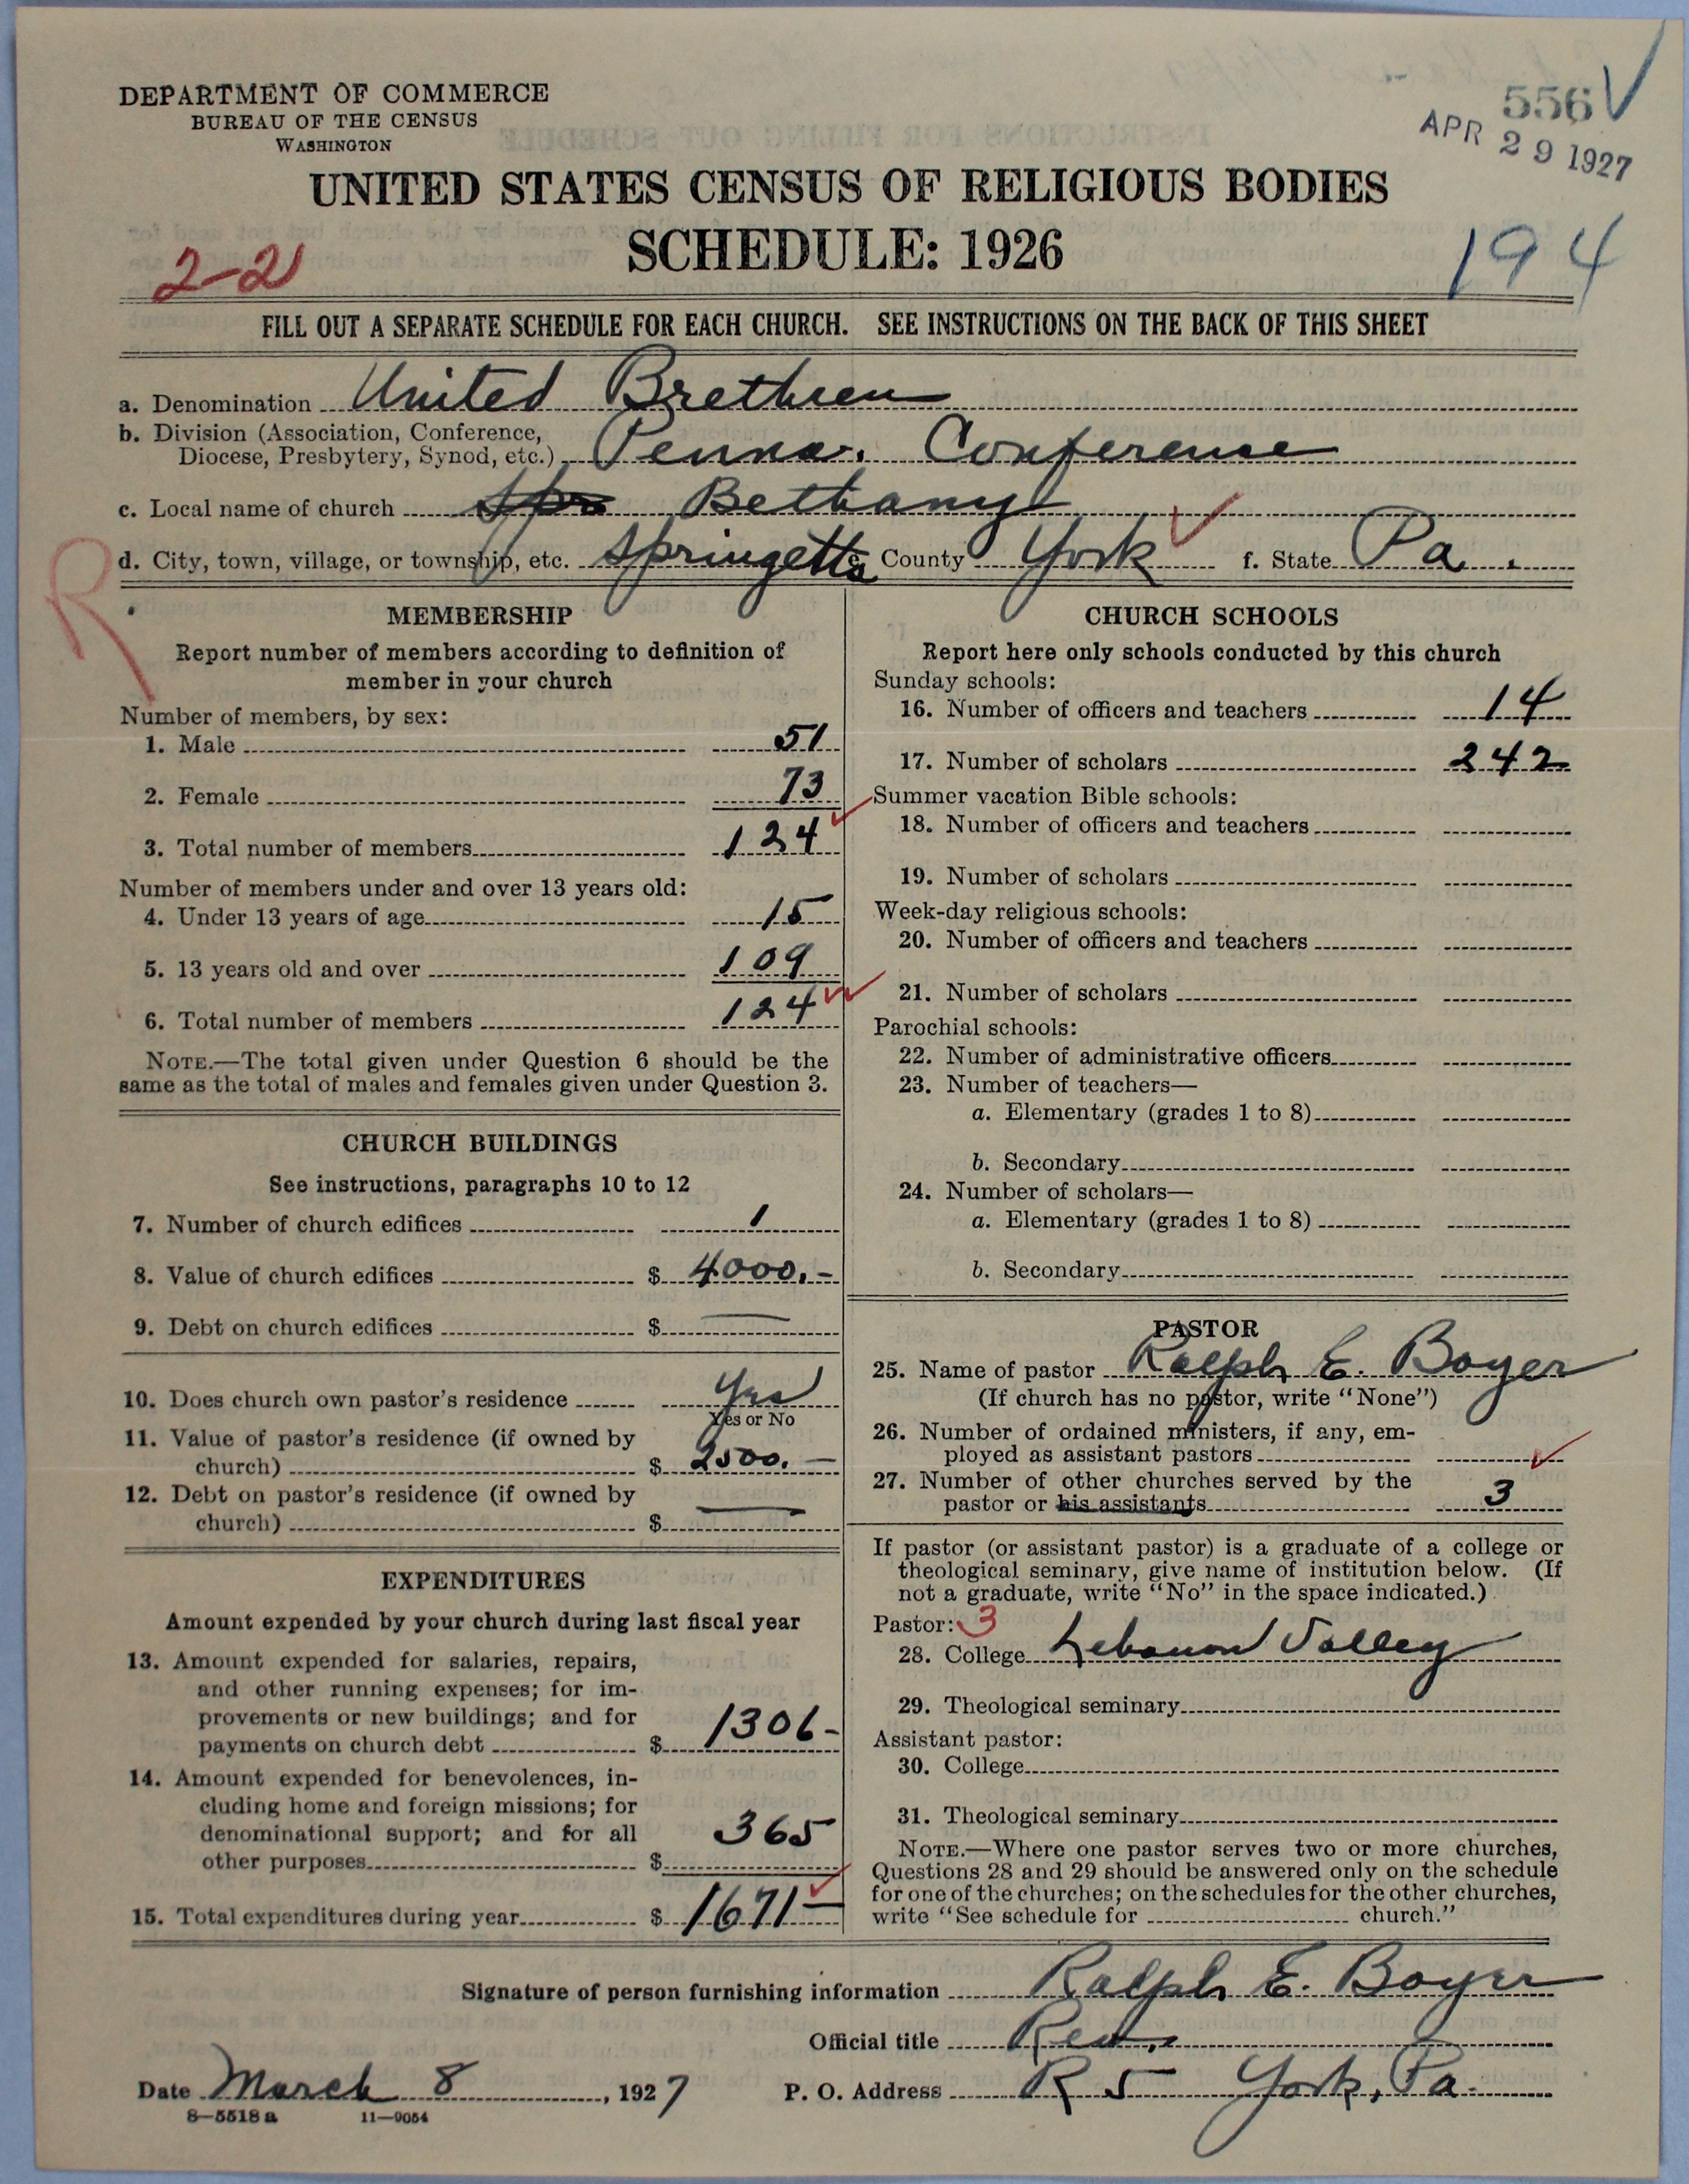 DEPARTMENT OF COMMERCE
BUREAU OF THE CENSUS
WASHINGTON
556
APR 29 1927
UNITED STATES CENSUS OF RELIGIOUS BODIES
SCHEDULE: 1926
2-21
194
FILL OUT A SEPARATE SCHEDULE FOR EACH CHURCH. SEE INSTRUCTIONS ON THE BACK OF THIS SHEET
a. Denomination United Brethren
b. Division (Association, Conference,
Diocese, Presbytery, Synod, etc.) Penna. Conference
c. Local name of church Bethany
d. City, town, village, or township, etc. Springetts e. County York f. State Pa.
R
MEMBERSHIP
Report number of members according to definition of
member in your church
Number of members, by sex:
1. Male 51
2. Female 73
3. Total number of members 124
Number of members under and over 13 years old:
4. Under 13 years of age 15
5. 13 years old and over 109
6. Total number of members 124
NOTE.—The total given under Question 6 should be the
same as the total of males and females given under Question 3.
CHURCH BUILDINGS
See instructions, paragraphs 10 to 12
7. Number of church edifices 1
8. Value of church edifices $ 4000.-
9. Debt on church edifices $ —
10. Does church own pastor's residence Yes
Yes or No
11. Value of pastor's residence (if owned by
church) $ 2500.—
12. Debt on pastor's residence (if owned by
church) $ —
EXPENDITURES
Amount expended by your church during last fiscal year
13. Amount expended for salaries, repairs,
and other running expenses; for im-
provements or new buildings; and for
payments on church debt $ 1306-
14. Amount expended for benevolences, in-
cluding home and foreign missions; for
denominational support; and for all
other purposes $ 365
15. Total expenditures during year $ 1671—
CHURCH SCHOOLS
Report here only schools conducted by this church
Sunday schools:
16. Number of officers and teachers 14
17. Number of scholars 242
Summer vacation Bible schools:
18. Number of officers and teachers
19. Number of scholars
Week-day religious schools:
20. Number of officers and teachers
21. Number of scholars
Parochial schools:
22. Number of administrative officers
23. Number of teachers—
a. Elementary (grades 1 to 8)
b. Secondary
24. Number of scholars—
a. Elementary (grades 1 to 8)
b. Secondary
PASTOR
25. Name of pastor Ralph E. Boyer
(If church has no pastor, write "None")
26. Number of ordained ministers, if any, em-
ployed as assistant pastors
27. Number of other churches served by the
pastor or his assistants 3
If pastor (or assistant pastor) is a graduate of a college or
theological seminary, give name of institution below. (If
not a graduate, write "No" in the space indicated.)
Pastor: 3
28. College Lebanon Valley
29. Theological seminary
Assistant pastor:
30. College
31. Theological seminary
NOTE.—Where one pastor serves two or more churches,
Questions 28 and 29 should be answered only on the schedule
for one of the churches; on the schedules for the other churches,
write "See schedule for church."
Signature of person furnishing information Ralph E. Boyer
Official title Rev.
Date March 8, 1927 P. O. Address R 5 York, Pa.
8-5518 a 11-9054